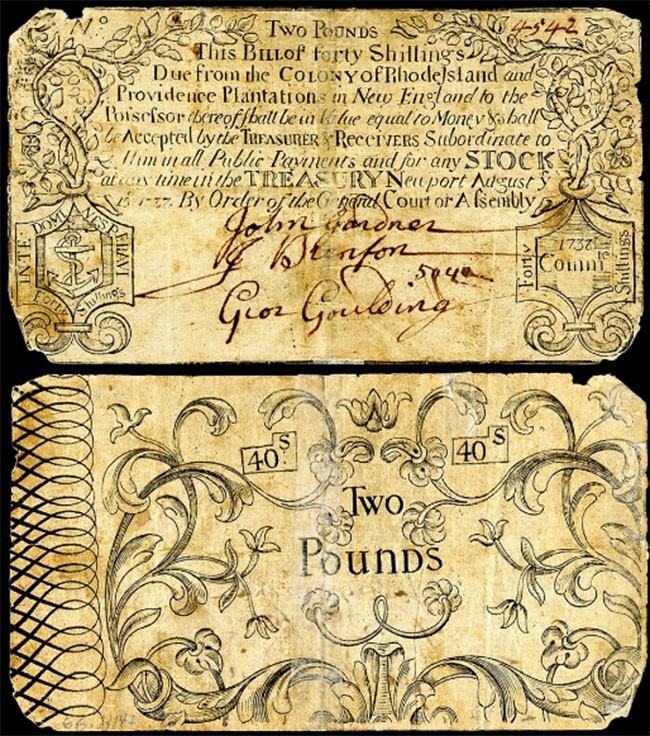 Nº 4542
TWO POUNDS
This BILL of forty Shillings
Due from the COLONY of Rhode Island and
Providence Plantations in New England to the
Possessor thereof shall be in Value equal to Money & shall
be Accepted by the TREASURER & RECEIVERS Subordinate to
him in all Public Payments and for any STOCK
at any time in the TREASURY Newport August yͤ
1737. By Order of the General Court or Assembly
John Gardner
Geor Goulding
5040
IN TE DOMINE SPERAVI
Forty Shillings
Forty Shillings
1737
Commᵗᵉᵉ
40.S
40S
TWO
POUNDS